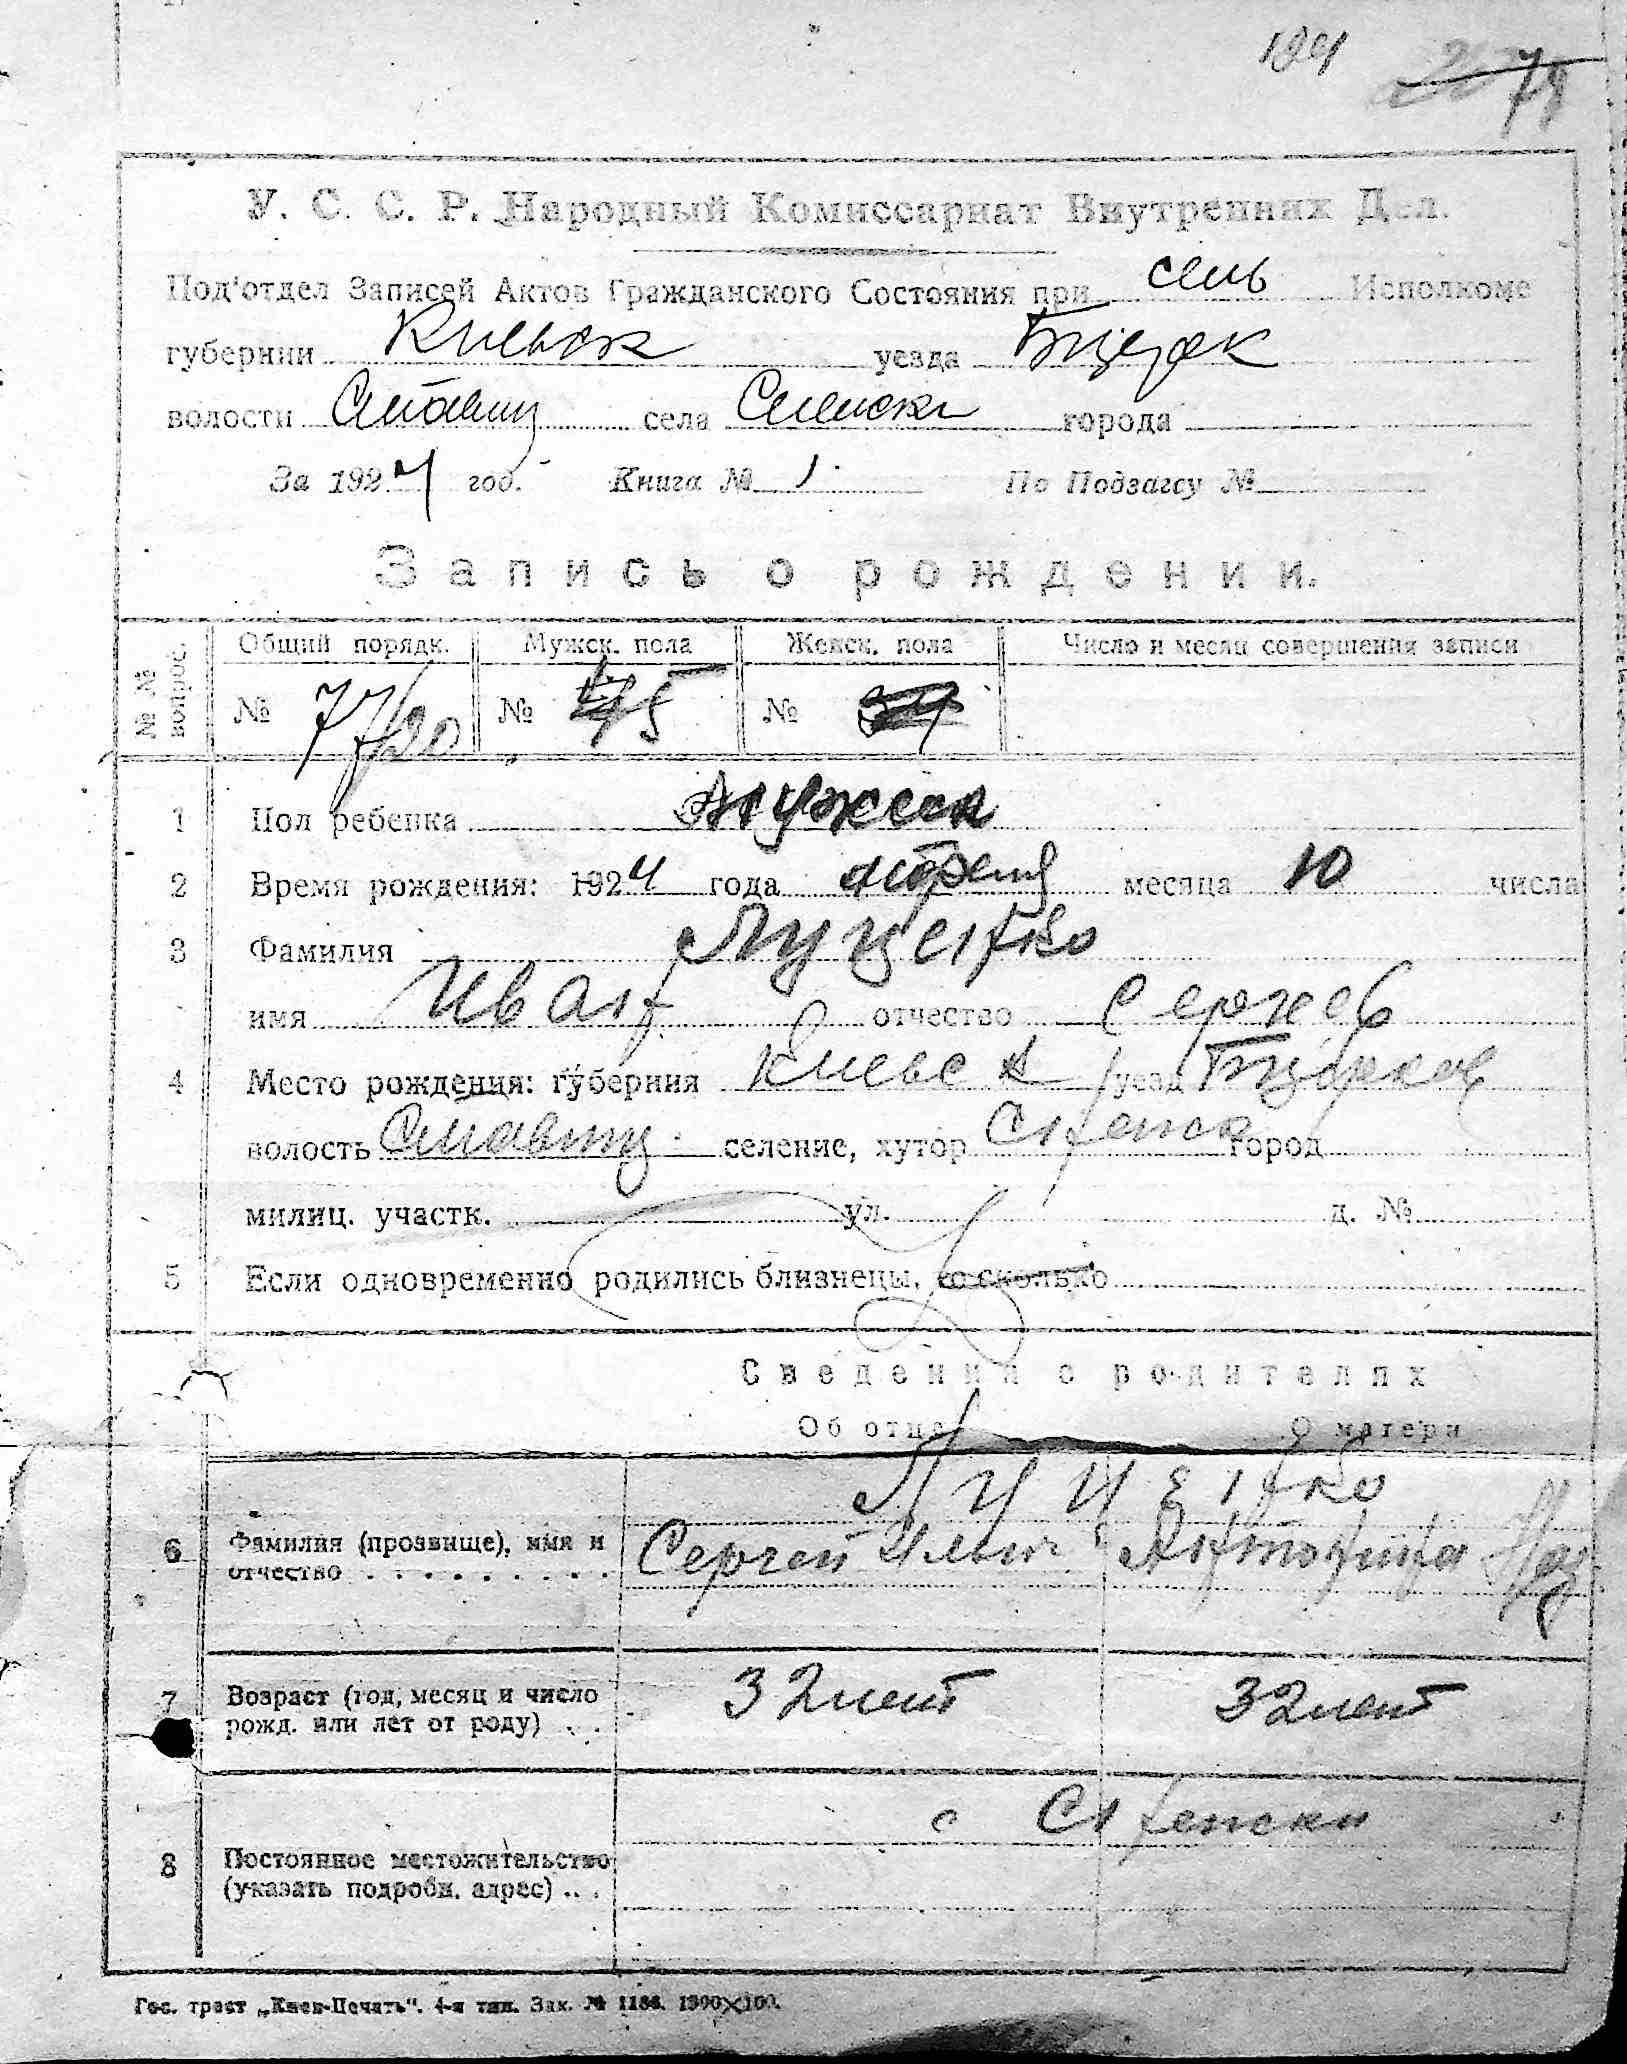 194 78
У. С. С. Р. Народный Комиссариат Внутренних Дел.
Под'отдел Записей Актов Гражданского Состояния при сель Исполкоме
губернии Киевск уезда Бцерк
волости Ставищ села города
За 1924 год. Книга № 1. По Подзагсу №
Запись о рождении.
№ № вопрос. Общий порядк. Мужск. пола Женск. пола Число и месяц совершения записи
№ 77/20 № 45 №
1 Пол ребенка Мужеск
2 Время рождения: 1924 года апреля месяца 10 числа
3 Фамилия Луценко
имя Иван отчество Сергеев
4 Место рождения: губерния Киевск уезд Бцерков
волость Ставищ селение, хутор город
милиц. участк. ул. д. №
5 Если одновременно родились близнецы, то сколько
Сведения о родителях
Об отце О матери
Луценко
6 Фамилия (прозвище), имя и Сергей Ильич Антонина
отчество . . . . . . . . .
7 Возраст (год, месяц и число 32 лет 32 лет
рожд. или лет от роду) . . .
с
8 Постоянное местожительство
(указать подробн. адрес) . . .
Гос. трест „Киев-Печать“. 4-я тип. Зак. № 1186. 1300×100.